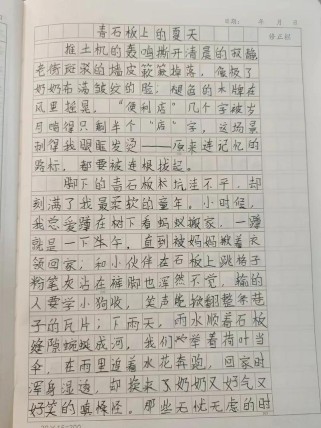 日期： 年 月 日
青石板上的夏天 修正栏
推土机的轰鸣撕开清晨的寂静
老街斑驳的墙皮簌簌掉落，像极了
奶奶布满皱纹的脸。褪色的木牌在
风里摇晃，“便利店”几个字被岁
月啃得只剩半个“店”字，这场景
刺得我眼眶发烫——原来连记忆的
路标，都要被连根拔起。
脚下的青石板坑洼不平，却
刻满了我最柔软的童年。小时候，
我总爱蹲在树下看蚂蚁搬家，一蹲
就是一下午，直到被妈妈揪着衣
领回家；和小伙伴在石板上跳格子
粉笔灰沾在裤脚也浑然不觉，输的
人要学小狗叫，笑声能掀翻整条巷
子的瓦片；下雨天，雨水顺着石板
缝隙蜿蜒成河，我们举着荷叶当
伞，在雨里追着水花奔跑，回家时
浑身湿透，却换来了奶奶又好气又
好笑的嗔怪。那些无忧无虑的时